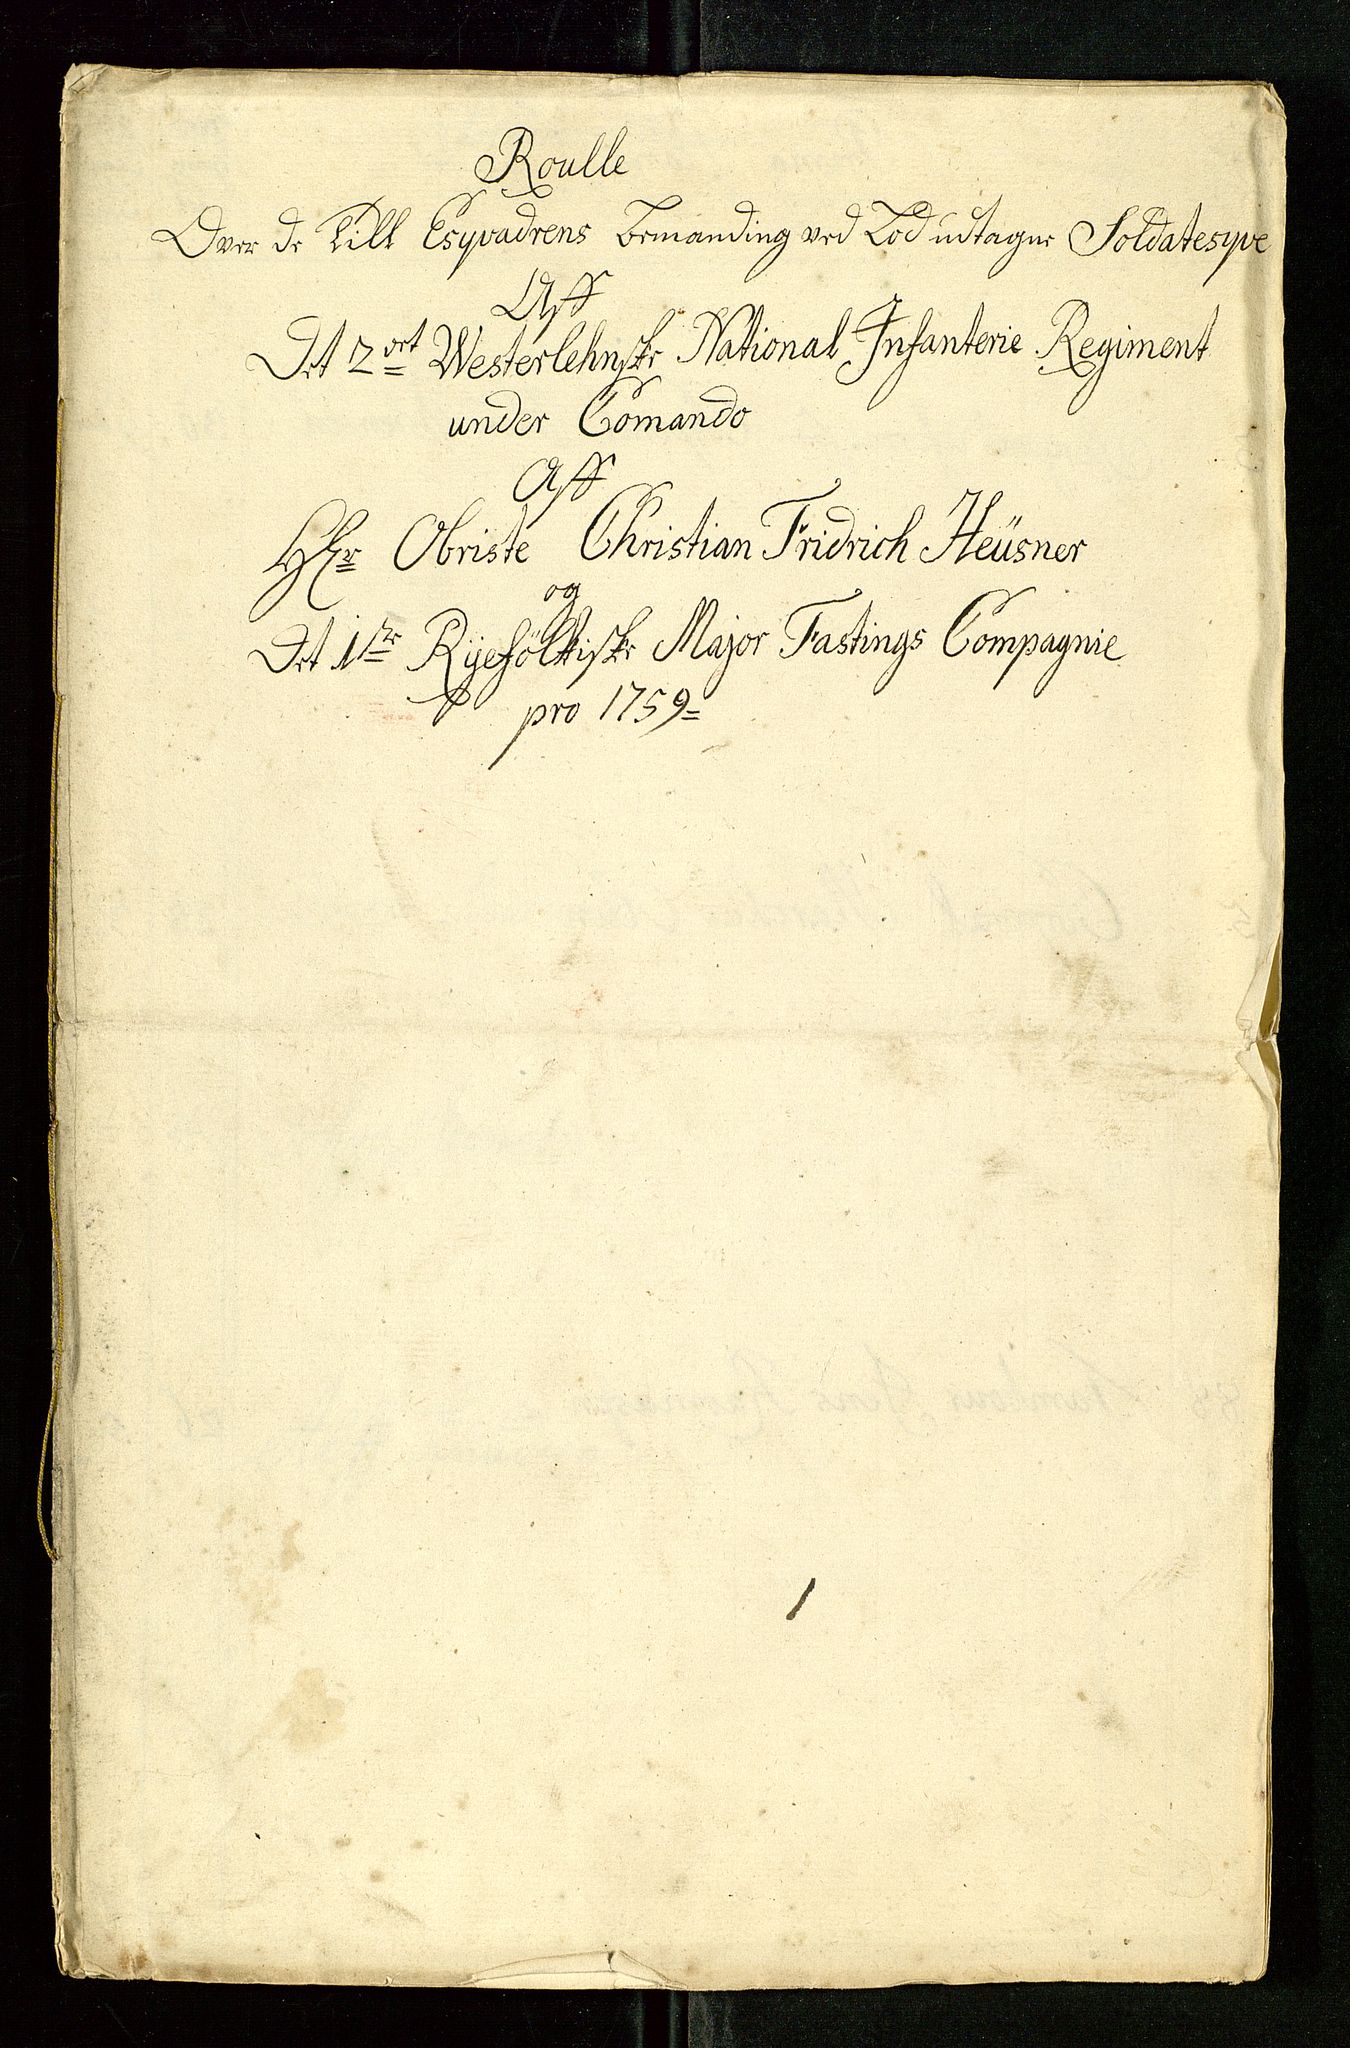 Roulle
Over de Till Esqvadrens bemanding ved Lod udtagne Soldatesqve
Aff
Det 2det Westerlehnske National Infanterie Regiment
under Comando
Aff
Hr Obriste Christian Fridrich Heüsner
og
Det 1ste Ryefölkiske Major Fastings Compagnie
pro 1759
1